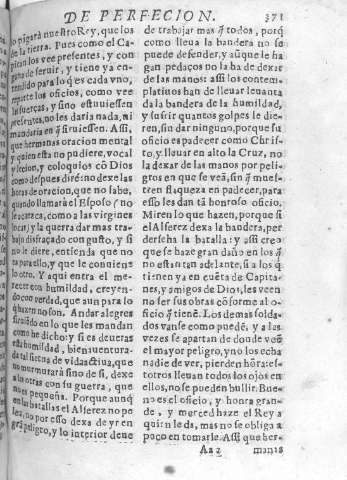 DE PERFECION. 371
lo pagarà nuestro Rey, que los
de la tierra. Pues como el Ca-
pitan los vee presentes, y con
gana de seruir, y tiene ya en-
tendido para lo q̃ es cada vno,
reparte los oficios, como vee
las fuerças, y sino estuuiessen
presentes, no les daria nada, ni
mandaria en q̃ siruiessen. Assi,
que hermanas oracion mental
y quien esta no pudiere, vocal
y lecion, y coloquios cõ Dios
como despues dirè: no dexe las
horas de oracion, que no sabe,
quando llamarà el Esposo (no
os acaezca, como a las virgines
locas) y la querra dar mas tra-
bajo disfraçado con gusto, y si
no le diere, entienda que no
es para ello, y que le conuiene
lo otro. Y aqui entra el me-
recer con humildad, creyen-
do con verdad, que aun para lo
q̃ hazen no son. Andar alegres
siruiẽdo en lo que les mandan
como he dicho: y si es deueras
esta humildad, bienauentura-
da tal sierua de vida actiua, que
no murmurarà sino de si, dexe
a las otras con su guerra, que
no es pequeña. Porque aunq̃
en las batallas el Alferez no pe-
lea, no por esso dexa de yr en
gran peligro, y lo interior deue
de trabajar mas q̃ todos, porq̃
como lleua la bandera no se
puede defender, y aũque le ha-
gan pedaços no la ha de dexar
de las manos: assi los contem-
platiuos han de lleuar leuanta
da la bandera de la humildad,
y sufrir quantos golpes le die-
ren, sin dar ninguno, porque su
oficio es padecer como Chris-
to, y lleuar en alto la Cruz, no
la dexar de las manos por peli-
gros en que se veã, sin q̃ mues-
tren flaqueza en padecer, para
esso les dan tã honroso oficio.
Miren lo que hazen, porque si
el Alferez dexa la bandera, per-
derseha la batalla: y assi creo
que se haze gran daño en los q̃
no estan tan adelante, si a los q̃
tienen ya en cuẽta de Capita-
nes, y amigos de Dios, les veen
no ser sus obras cõforme al ofi-
cio q̃ tienẽ. Los demas solda-
dos vanse como puedẽ, y a las
vezes se apartan de donde veẽn
el mayor peligro, y no los echa
nadie de ver, pierden hõra: es-
totros lleuan todos los ojos en
ellos, no se pueden bullir. Bue-
no es el oficio, y honra gran-
de, y merced haze el Rey a
quiẽ le da, mas no se obliga a
poco en tomarle. Assi que her-
Aa 2 manas